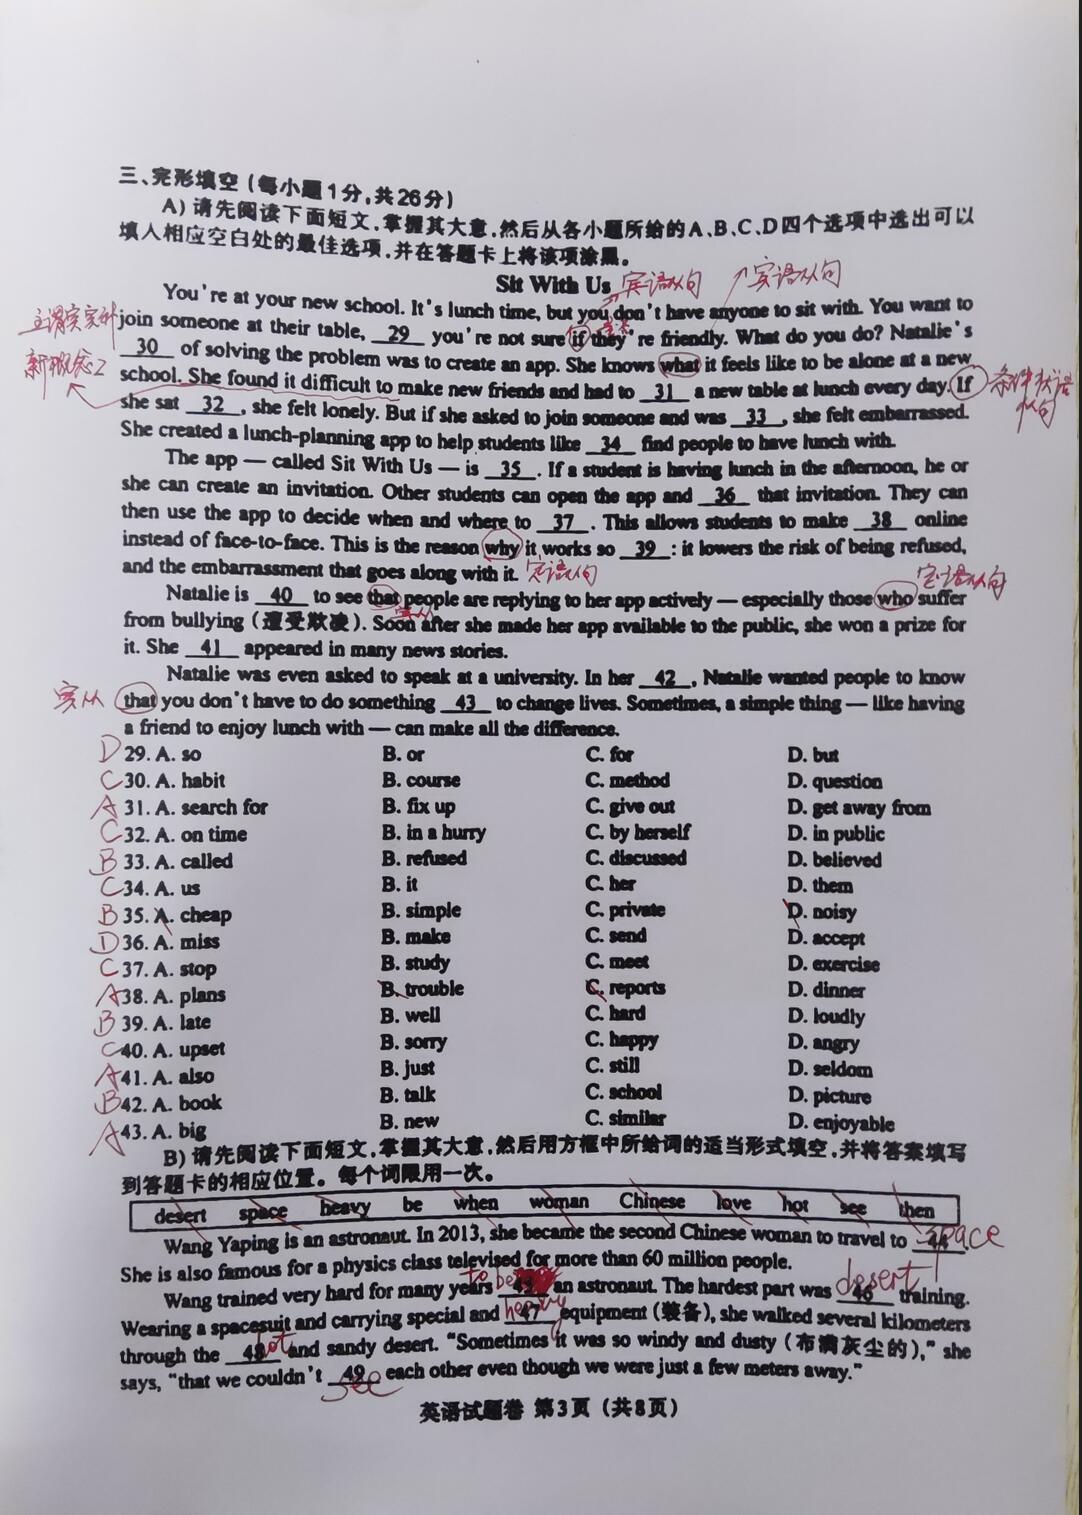 三、完形填空（每小题1分,共26分）
A）请先阅读下面短文,掌握其大意,然后从各小题所给的A、B、C、D四个选项中选出可以
填入相应空白处的最佳选项,并在答题卡上将该项涂黑。
Sit With Us 宾语从句 宾语从句
You're at your new school. It's lunch time, but you don't have anyone to sit with. You want to
join someone at their table, 29 you're not sure if they're friendly. What do you do? Natalie's
主谓宾宾补
30 of solving the problem was to create an app. She knows what it feels like to be alone at a new
新概念2
school. She found it difficult to make new friends and had to 31 a new table at lunch every day. If
条件状语从句
she sat 32 , she felt lonely. But if she asked to join someone and was 33 , she felt embarrassed.
She created a lunch-planning app to help students like 34 find people to have lunch with.
The app — called Sit With Us — is 35 . If a student is having lunch in the afternoon, he or
she can create an invitation. Other students can open the app and 36 that invitation. They can
then use the app to decide when and where to 37 . This allows students to make 38 online
instead of face-to-face. This is the reason why it works so 39 : it lowers the risk of being refused,
and the embarrassment that goes along with it. 定语从句
定语从句
Natalie is 40 to see that people are replying to her app actively — especially those who suffer
宾从
from bullying (遭受欺凌). Soon after she made her app available to the public, she won a prize for
it. She 41 appeared in many news stories.
Natalie was even asked to speak at a university. In her 42 , Natalie wanted people to know
宾从 that you don't have to do something 43 to change lives. Sometimes, a simple thing — like having
a friend to enjoy lunch with — can make all the difference.
D 29. A. so B. or C. for D. but
C 30. A. habit B. course C. method D. question
A 31. A. search for B. fix up C. give out D. get away from
C 32. A. on time B. in a hurry C. by herself D. in public
B 33. A. called B. refused C. discussed D. believed
C 34. A. us B. it C. her D. them
B 35. A. cheap B. simple C. private D. noisy
D 36. A. miss B. make C. send D. accept
C 37. A. stop B. study C. meet D. exercise
A 38. A. plans B. trouble C. reports D. dinner
B 39. A. late B. well C. hard D. loudly
C 40. A. upset B. sorry C. happy D. angry
A 41. A. also B. just C. still D. seldom
B 42. A. book B. talk C. school D. picture
A 43. A. big B. new C. similar D. enjoyable
B）请先阅读下面短文,掌握其大意,然后用方框中所给词的适当形式填空,并将答案填写
到答题卡的相应位置。每个词限用一次。
desert space heavy be when woman Chinese love hot see then
Wang Yaping is an astronaut. In 2013, she became the second Chinese woman to travel to 44 space .
She is also famous for a physics class televised for more than 60 million people.
Wang trained very hard for many years 45 to be an astronaut. The hardest part was 46 desert training.
Wearing a spacesuit and carrying special and 47 heavy equipment (装备), she walked several kilometers
through the 48 hot and sandy desert. "Sometimes it was so windy and dusty (布满灰尘的)," she
says, "that we couldn't 49 see each other even though we were just a few meters away."
英语试题卷 第3页（共8页）